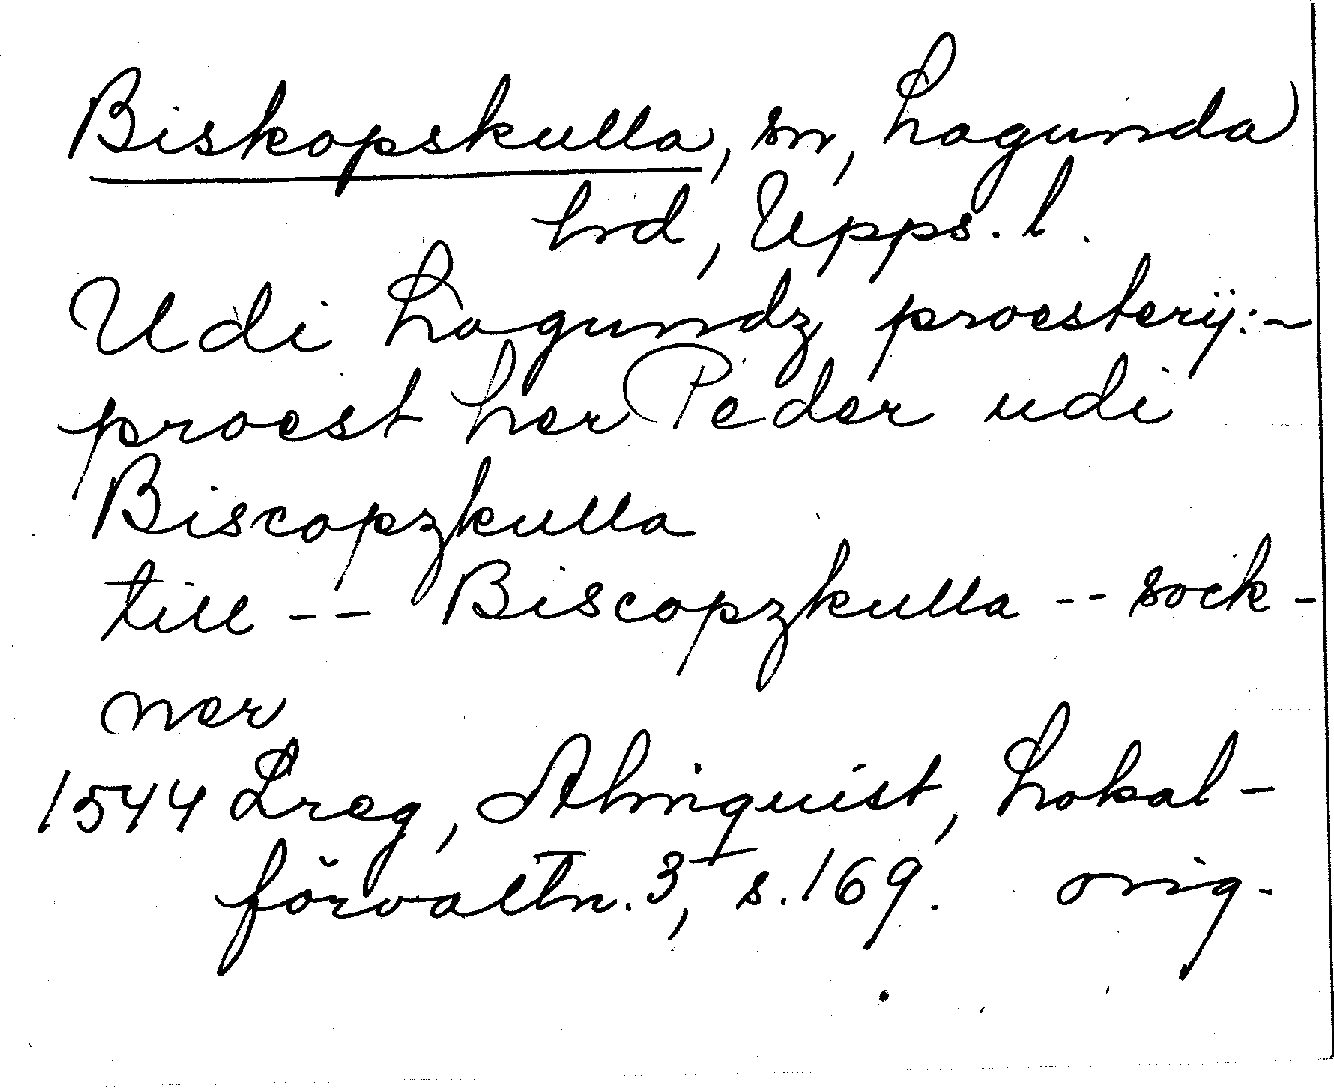 Biskopskulla, sn, Lagunda
hd, Upps. l.
Udi Lagundz proesterij:-
proest her Peder udi
Biscopzkulla
till -- Biscopzkulla -- sock-
ner
1544 Lreg, Almquist, Lokal-
förvaltn. 3, s. 169. orig.